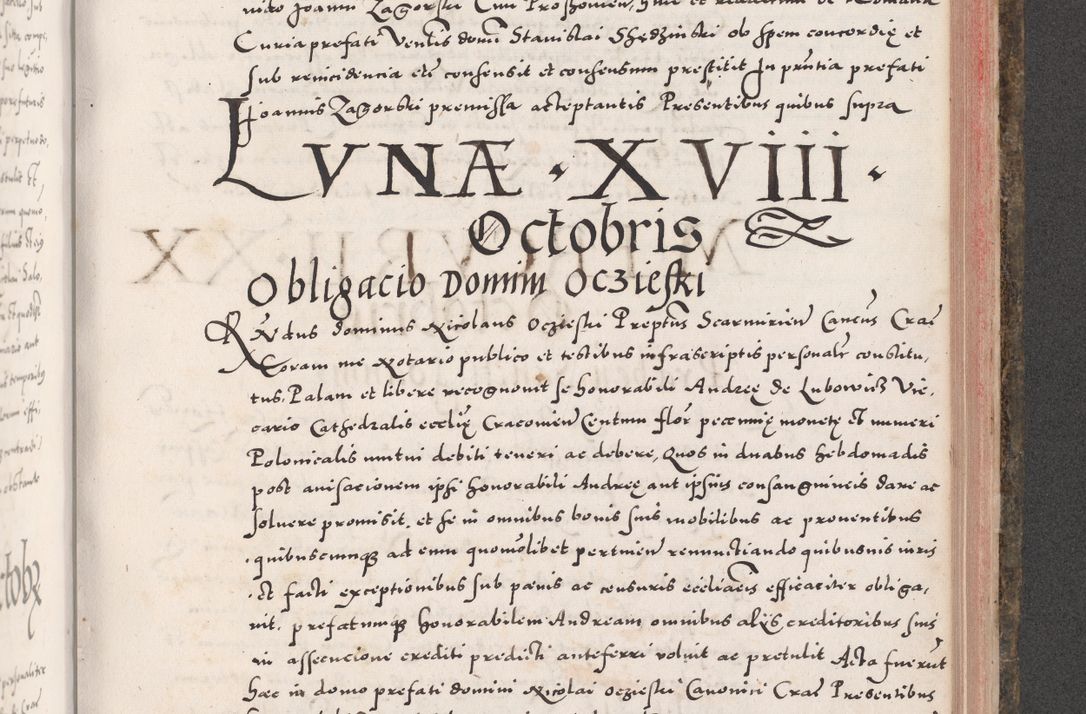 Curia prefati Ventis domi Stanislai Shędzinski ob spem concordię et
sub reincidencia etc consensit et consensum prestitit In pntia prefati
Joannis Zagorski premissa acceptantis Presentibus quibus supra
LVNÆ · XVIII ·
Octobris
Obligacio Domini Oczieski
Rndus dominus Nicolaus Oczieski Preptus Scarmirien Cancus Crac
Coram me Notario publico et testibus infrascriptis personalr constitu,
tus, Palam et libere recognovit se honorabili Andreę de Lubowicz Vic,
cario Cathedralis ecclię Cracovien Centum flor pecunię monetę et numeri
Polonicalis mutui debiti teneri ac debere, Quos in duabus hebdomadis
post avisacionem ipsi honorabili Andreę aut ipsius consanguineis dare ac
solvere promisit, et se in omnibus bonis suis mobilibus ac proventibus
quibuscumque ad eum quomolibet pertinen renunctiando quibusvis iuris
et facti exceptionibus sub pœnis ac censuris eccliacis efficaciter obliga,
vit. prefatumque honorabilem Andream omnibus alijs creditoribus suis
in assecucione crediti predicti anteferri voluit ac pretulit Acta fuerut
haec in domo prefati domini Nicolai Oczieski Canonici Crac Presentibus